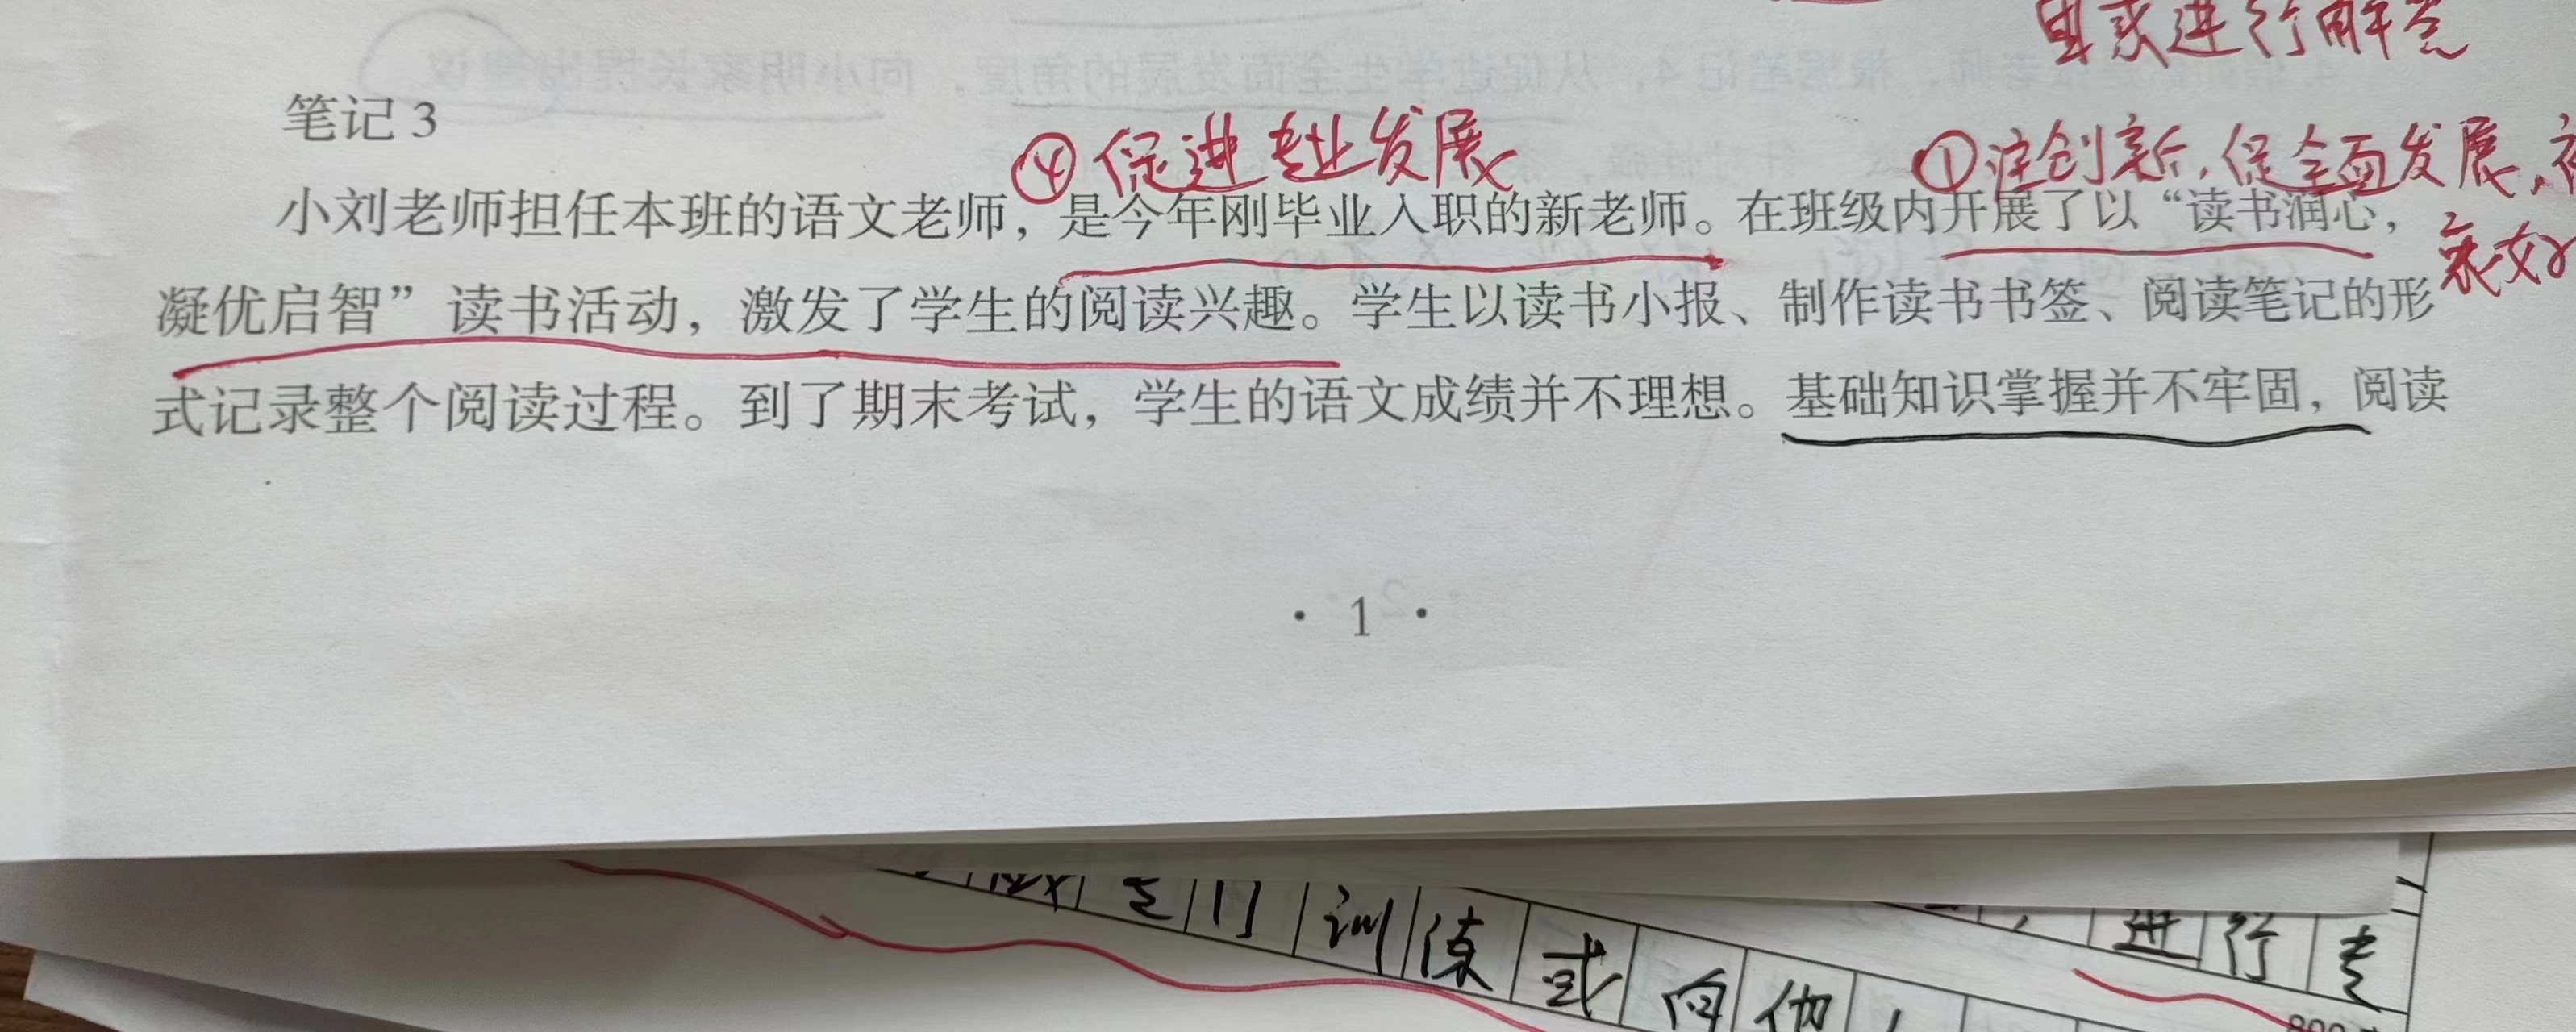 困惑进行解答
笔记3
④促进专业发展
①注创新,促全面发展,
小刘老师担任本班的语文老师，是今年刚毕业入职的新老师。在班级内开展了以“读书润心，
凝优启智”读书活动，激发了学生的阅读兴趣。学生以读书小报、制作读书书签、阅读笔记的形
式记录整个阅读过程。到了期末考试，学生的语文成绩并不理想。基础知识掌握并不牢固，阅读
· 1 ·
门训练或向他
进行专